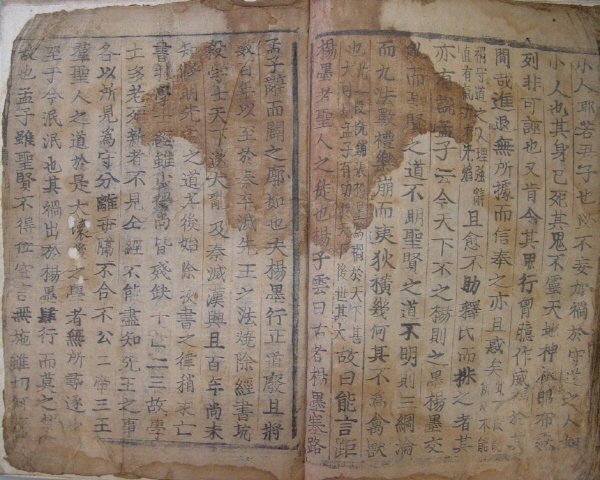 小人耶若君子也必不妄加禍於守道之人如
小人也其身已死其鬼不靈天地神祇昭布森
列非可誣也又肯令其鬼行胸臆作威福於其
間哉進退無所據而信奉之亦且惑矣
稱守道之人理強辭
直有氣
且愈不助釋氏而排之者其
亦有說孟子云今天下不之楊則之墨楊墨交
亂而聖賢之道不明聖賢之道不明則三綱淪
而九法斁禮樂崩而夷狄橫幾何其不為禽獸
也
故曰能言距
楊墨者聖人之徒也揚子雲曰古者楊墨塞路
孟子辭而闢之廓如也夫楊墨行正道廢且將
數百年以至於秦卒滅先王之法燒除經書坑
殺學士天下遂大亂及秦滅漢興且百年尚未
知修明先王之道其後始除挾書之律稍求亡
書招學士經雖少得尚皆殘缺十亡二三故學
士多老死新者不見全經不能盡知先王之事
各以所見為守分離乖隔不合不公二帝三王
羣聖人之道於是大壞後之學者無所尋逐以
至于今泯泯也其禍出於楊墨肆行而莫之禁
故也孟子雖聖賢不得位空言無施雖切何